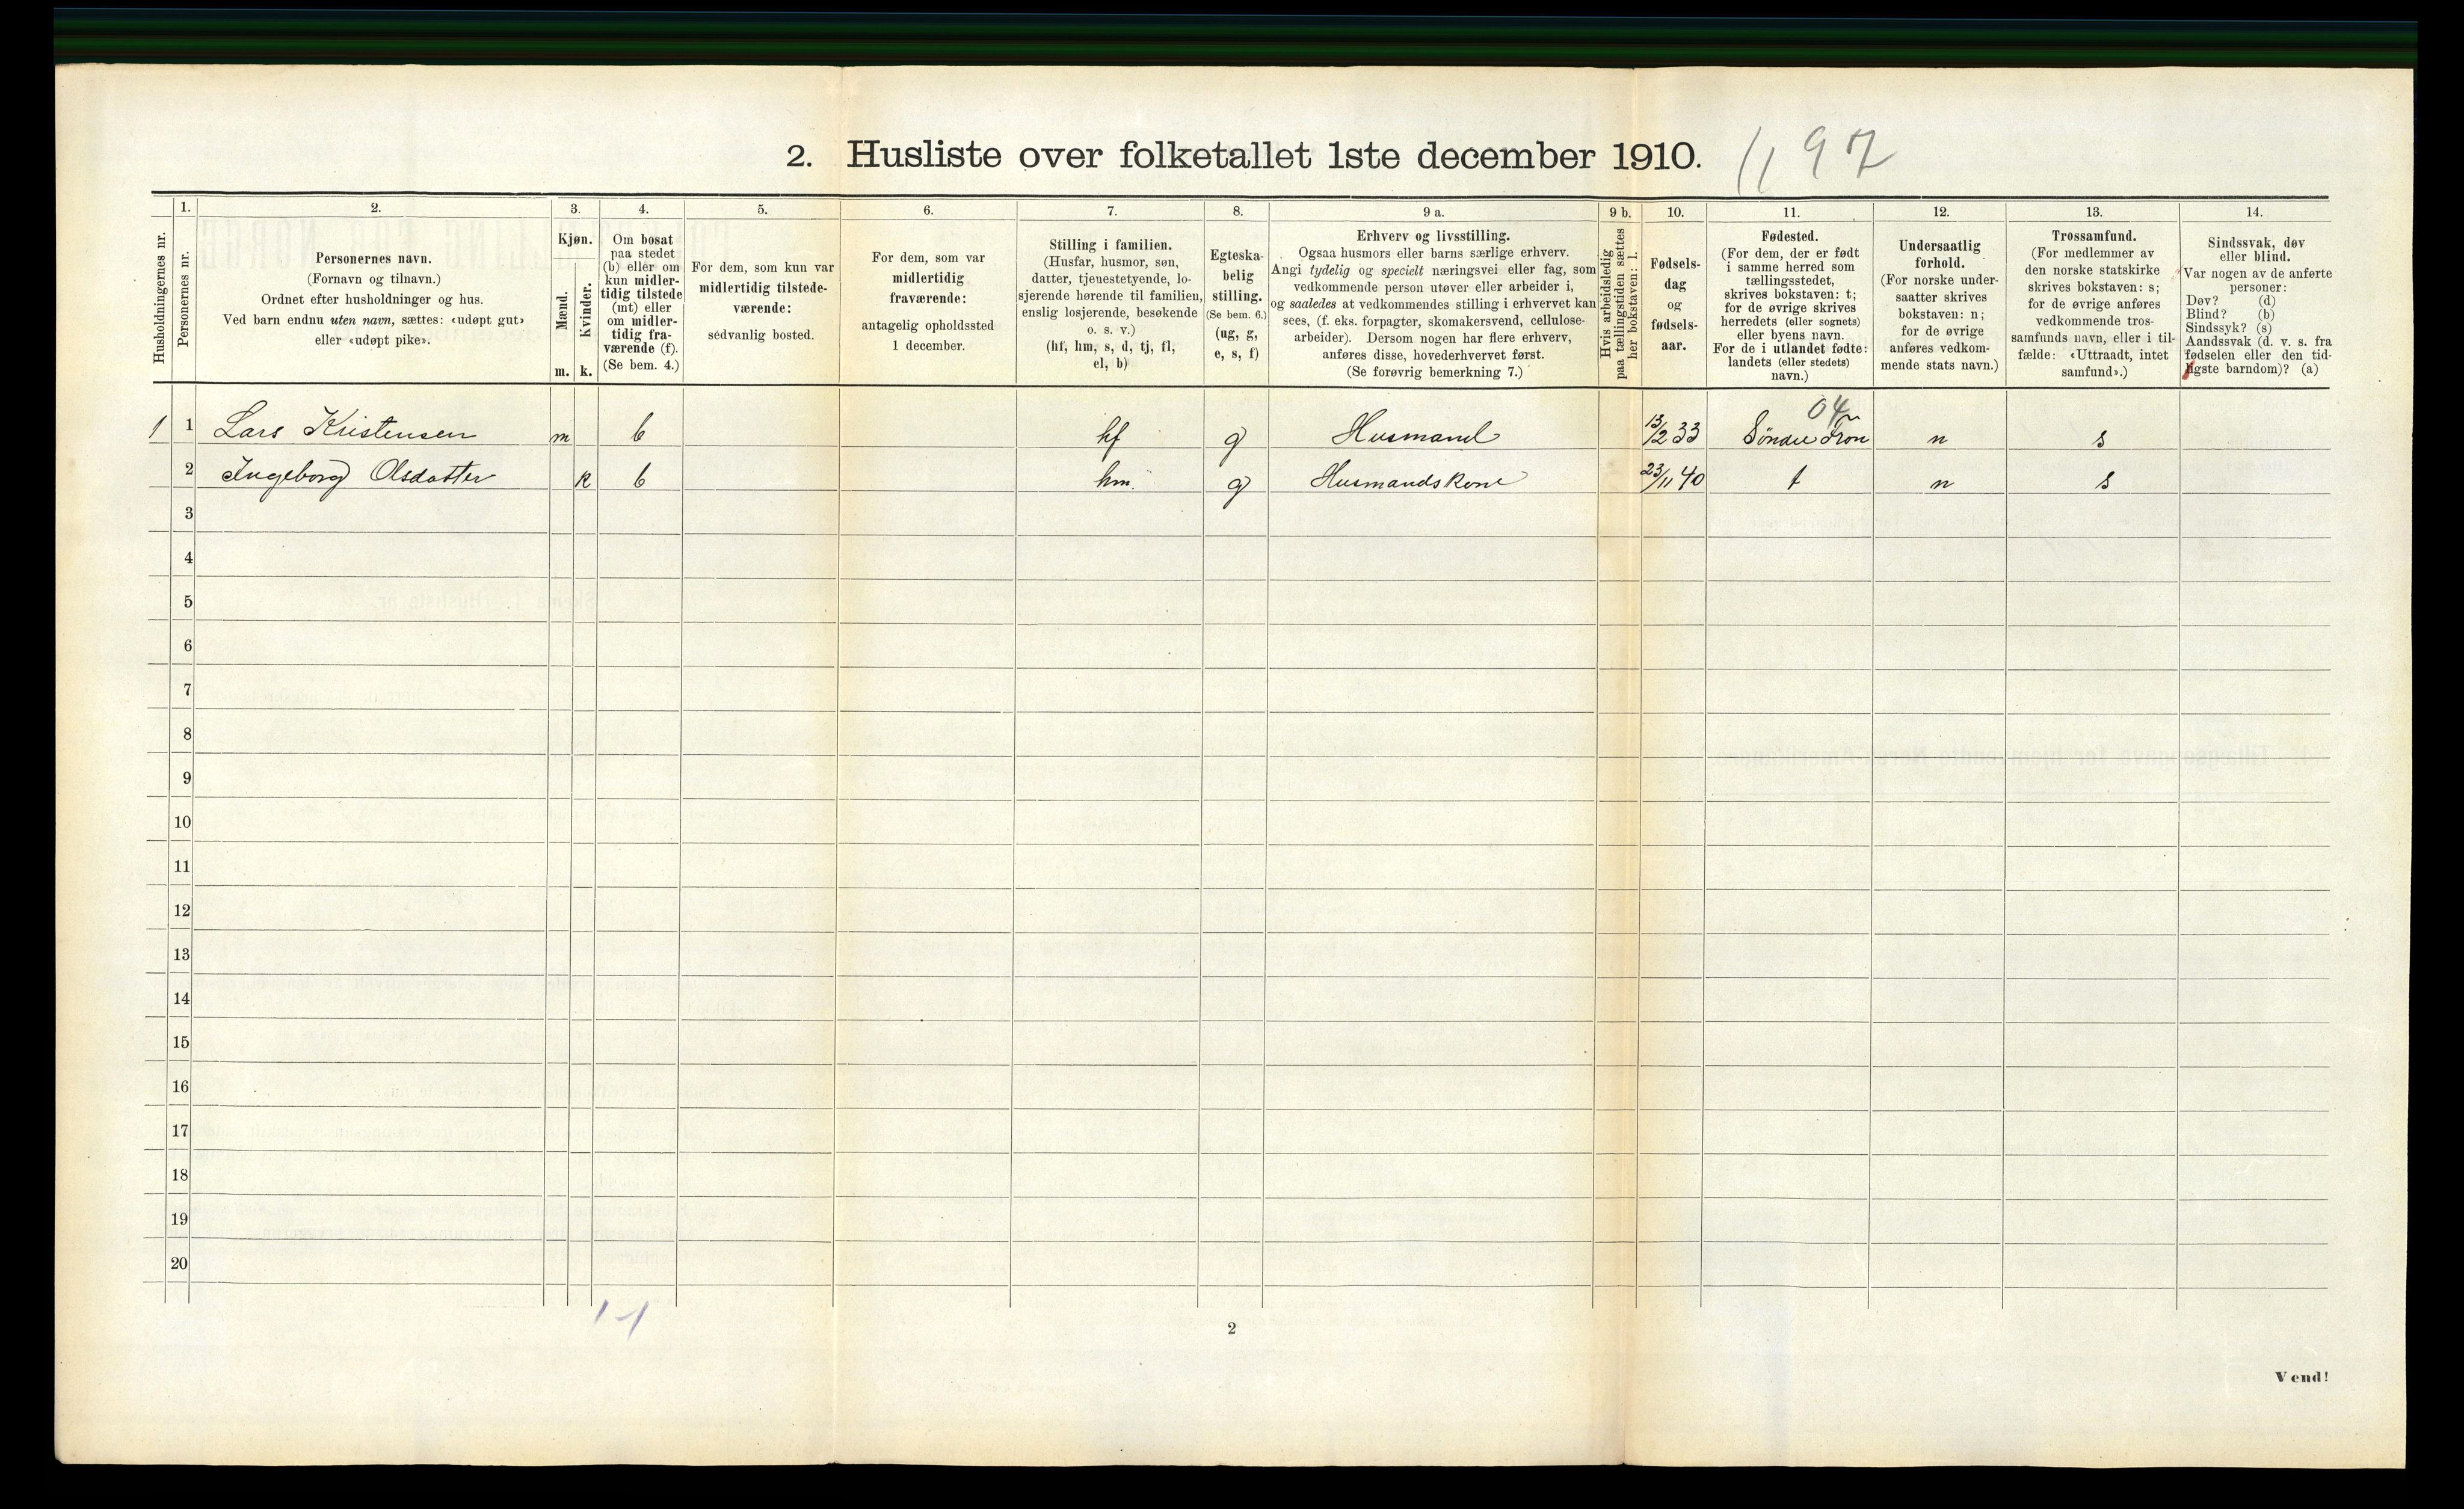 2. Husliste over folketallet 1ste december 1910.
1197
1. 2. 3. 4. 5. 6. 7. 8. 9 a. 9 b. 10. 11. 12. 13. 14.
Husholdningernes nr.
Personernes nr.
Personernes navn.
(Fornavn og tilnavn.)
Ordnet efter husholdninger og hus.
Ved barn endnu uten navn, sættes: «udøpt gut»
eller «udøpt pike».
Kjøn.
Mænd.
Kvinder.
m. k.
Om bosat
paa stedet
(b) eller om
kun midler-
tidig tilstede
(mt) eller
om midler-
tidig fra-
værende (f).
(Se bem. 4.)
For dem, som kun var
midlertidig tilstede-
værende:
sedvanlig bosted.
For dem, som var
midlertidig
fraværende:
antagelig opholdssted
1 december.
Stilling i familien.
(Husfar, husmor, søn,
datter, tjenestetyende, lo-
sjerende hørende til familien,
enslig losjerende, besøkende
o. s. v.)
(hf, hm, s, d, tj, fl,
el, b)
Egteska-
belig
stilling.
(Se bem. 6.)
(ug, g,
e, s, f)
Erhverv og livsstilling.
Ogsaa husmors eller barns særlige erhverv.
Angi tydelig og specielt næringsvei eller fag, som
vedkommende person utøver eller arbeider i,
og saaledes at vedkommendes stilling i erhvervet kan
sees, (f. eks. forpagter, skomakersvend, cellulose-
arbeider). Dersom nogen har flere erhverv,
anføres disse, hovederhvervet først.
(Se forøvrig bemerkning 7.)
Hvis arbeidsledig
paa tællingstiden sættes
her bokstaven: l.
Fødsels-
dag
og
fødsels-
aar.
Fødested.
(For dem, der er født
i samme herred som
tællingsstedet,
skrives bokstaven: t;
for de øvrige skrives
herredets (eller sognets)
eller byens navn.
For de i utlandet fødte:
landets (eller stedets)
navn.)
Undersaatlig
forhold.
(For norske under-
saatter skrives
bokstaven: n;
for de øvrige
anføres vedkom-
mende stats navn.)
Trossamfund.
(For medlemmer av
den norske statskirke
skrives bokstaven: s;
for de øvrige anføres
vedkommende tros-
samfunds navn, eller i til-
fælde: «Uttraadt, intet
samfund».)
Sindssvak, døv
eller blind.
Var nogen av de anførte
personer:
Døv? (d)
Blind? (b)
Sindssyk? (s)
Aandssvak (d. v. s. fra
fødselen eller den tid-
ligste barndom)? (a)
04
1 1 Lars Kristensen m b hf g Husmand 13/2 33 Søndre Fron n s
2 Ingeborg Olsdatter k b hm. g Husmandskone 23/11 40 t n s
3
4
5
6
7
8
9
10
11
12
13
14
15
16
17
18
19
20
1-1
2
Vend!